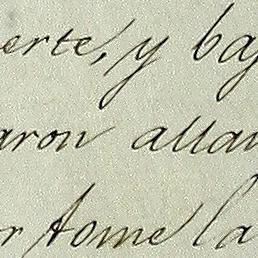 erte, y baj
aron allan
r tome la